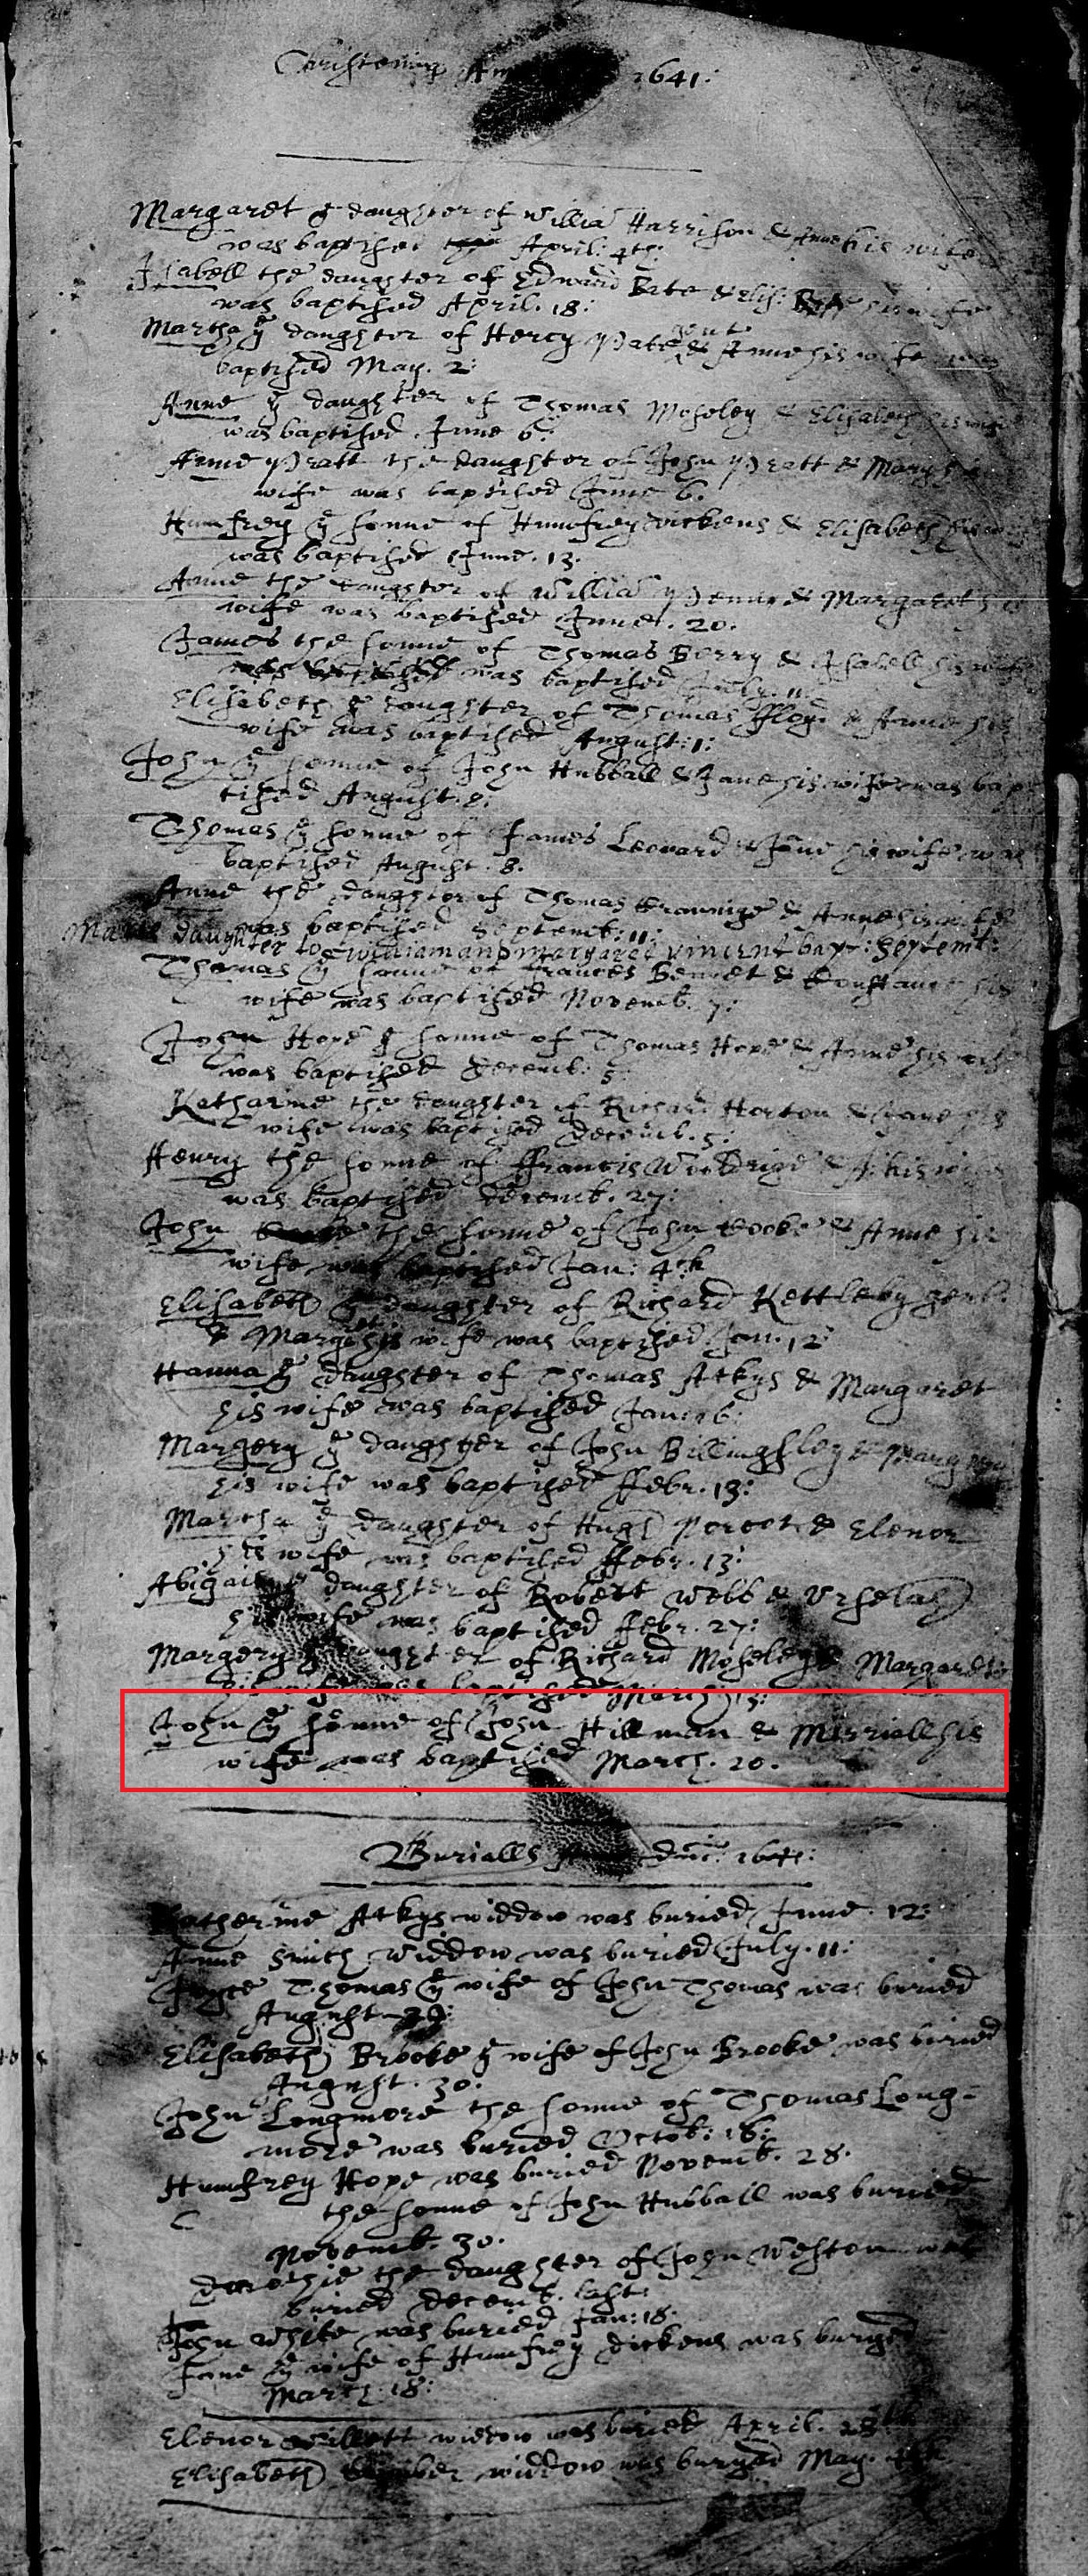 Christening 1641:
Margaret ye daughter of Willia Harrison & Anne his wife
was baptised April. 4th:
Isabell the daughter of Edward Bate & Elis: his wife
was baptised April. 18:
Martha ye daughter of Hercy & Anne his wife was
baptised May. 2:
Anne ye daughter of Thomas Moseley & Elisabeth his wife
was baptised. June 6:
Anne Pratt the daughter of John Pratt & Mary his
wife was baptised June 6.
Humfrey ye sonne of Humfrey Dickens & Elisabeth his wife
was baptised June. 13.
Anne the daughter of Willia & Margaret his
wife was baptised June. 20.
James the sonne of Thomas Berry & Isabell his wife
was baptised July. 11.
Elisabeth ye daughter of Thomas ffloyd & Anne his
wife was baptised August: 1:
John ye sonne of John Hubball & Jane his wife was bap
tised August. 8:
Thomas ye sonne of James Leonard & Jane his wife was
baptised August. 8.
Anne the daughter of Thomas & Anne his wife
was baptised Septemb: 11:
daughter to William and Margaret Vincent bapt: Septemb:
Thomas ye sonne of Frances Bennet & Constance his
wife was baptised Novemb. 7:
John Hope ye sonne of Thomas Hope & Anne his wife
was baptised Decemb: 5
Katharine the daughter of Richard Horton & Jane his
wife was baptised Decemb. 5:
Henry the sonne of ffrancis Wooldrige & A: his wife
was baptised Decemb. 27:
John the sonne of John Cooke & Anne his
wife was baptised Jan: 4th
Elisabeth ye daughter of Richard Kettleby gent:
& his wife was baptised Jan. 12
Hanna ye daughter of Thomas Atkys & Margaret
his wife was baptised Jan: 16:
Margery ye daughter of John Billingsley &
his wife was baptised ffebr. 13:
Martha ye daughter of Hugh & Elenor
his wife was baptised ffebr. 13:
Abigail ye daughter of Robert Webb & Urselah
his wife was baptised ffebr. 27:
Margery ye daughter of Richard Moseley & Margaret
his wife was baptised March 13:
John ye sonne of John Hillman & Merriall his
wife was baptised March. 20.
Burialls 1641:
Katherine Atkys widdow was buried June. 12:
Anne Smith widdow was buried July. 11:
Joyce Thomas ye wife of John Thomas was buried
August
Elisabeth Brooke ye wife of John Brooke was buried
August. 30:
John Longmore the sonne of Thomas Long=
more was buried Octob: 16:
Humfrey Hope was buried Novemb. 28.
the sonne of John Hubball was buried
Novemb. 30.
the daughter of John Weston was
buried Decemb. last
John White was buried Jan: 18.
Jane ye wife of Humfrey Dickens was buryed
March. 18:
Elenor widdow was buried April.
Elisabeth widdow was buryed May.